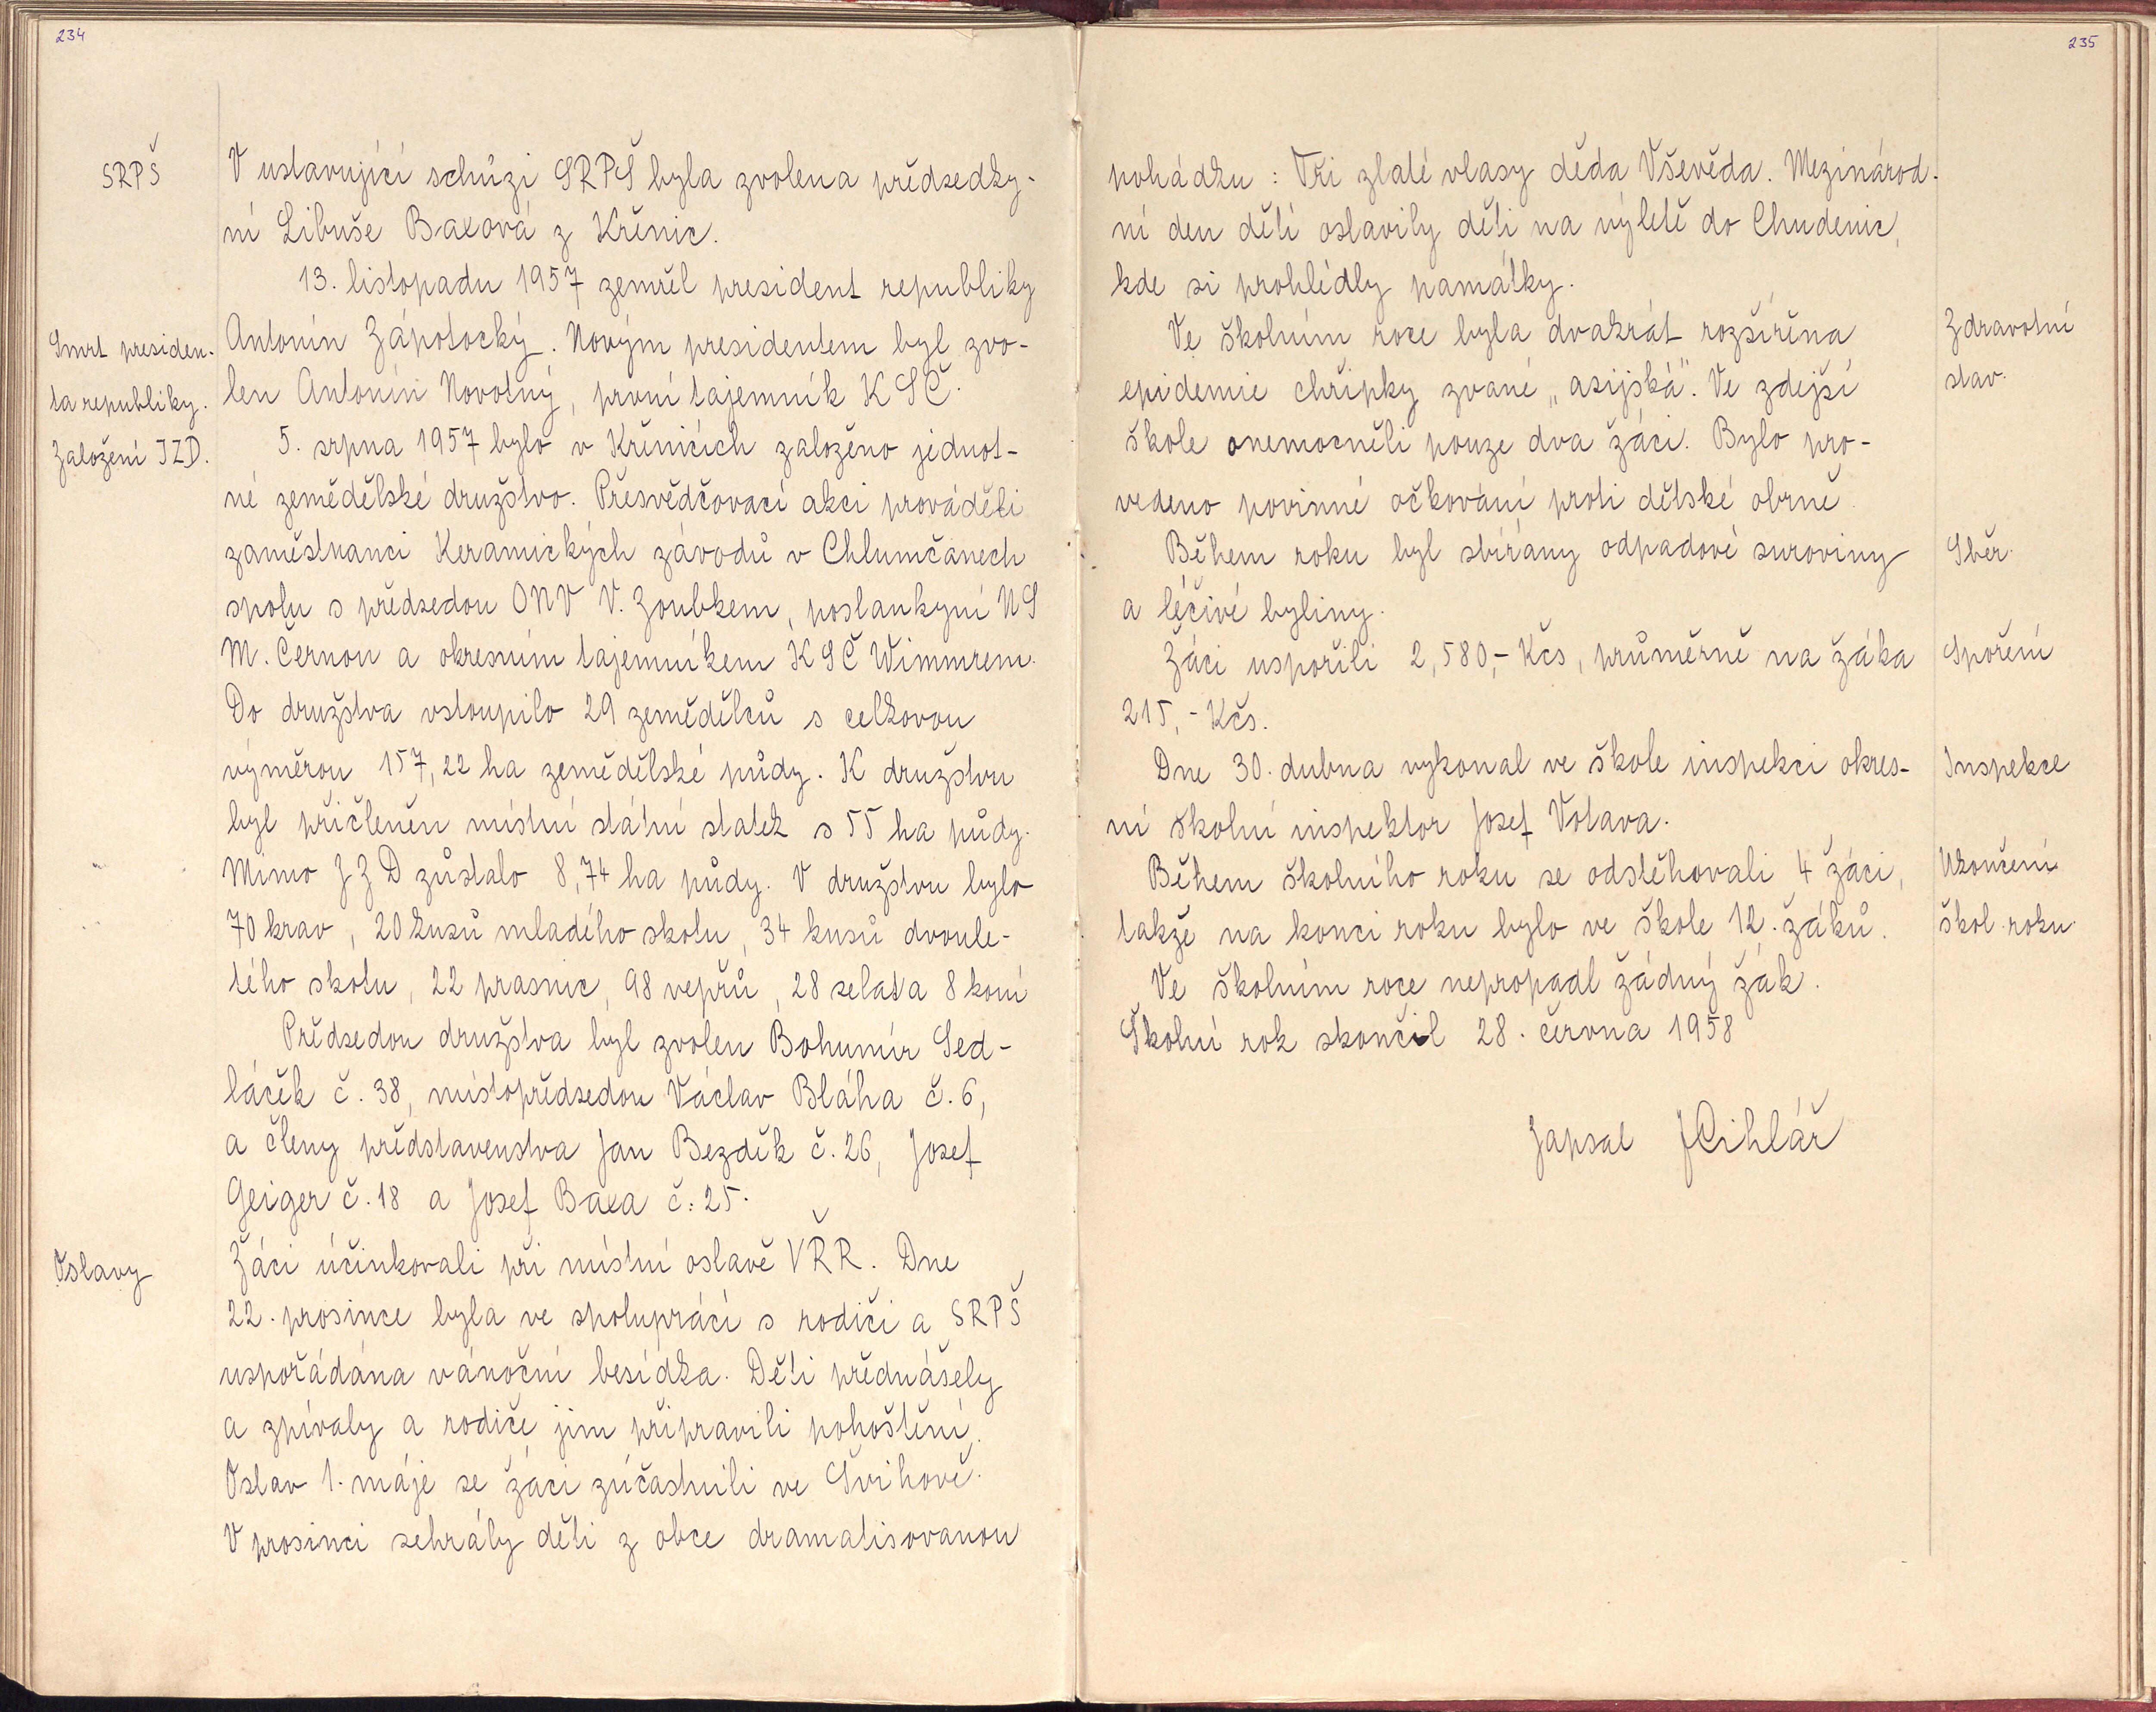 234
SRPŠ
V ustavující schůzi SRPŠ byla zvolena předsedky-
ní Libuše Baxová z Křenic.
13. listopadu 1957 zemřel president republiky
Smrt presiden-
ta republiky.
Antonín Zápotocký. Novým presidentem byl zvo-
len Antonín Novotný, první tajemník KSČ.
Založení JZD.
5. srpna 1957 bylo v Křenicích založeno jednot-
né zemědělské družstvo. Přesvědčovací akci prováděli
zaměstnanci Keramických závodů v Chlumčanech
spolu s předsedou ONV V. Zoubkem, poslankyní NS
M. Černou a okresním tajemníkem KSČ Wimmrem.
Do družstva vstoupilo 29 zemědělců s celkovou
výměrou 157,22 ha zemědělské půdy. K družstvu
byl přičleněn místní státní statek s 55 ha půdy.
Mimo JZD zůstalo 8,74 ha půdy. V družstvu bylo
70 krav, 20 kusů mladého skotu, 34 kusů dvoule-
tého skotu, 22 prasnic, 98 vepřů, 28 selat a 8 koní
Předsedou družstva byl zvolen Bohumír Sed-
láček č. 38, místopředsedou Václav Bláha č. 6,
a členy představenstva Jan Bezděk č. 26, Josef
Geiger č. 18 a Josef Baxa č. 25.
Oslavy
Žáci účinkovali při místní oslavě VŘR. Dne
22. prosince byla ve spolupráci s rodiči a SRPŠ
uspořádána vánoční besídka. Děti přednášely
a zpívaly a rodiče jim připravili pohoštění.
Oslav 1. máje se žáci zúčastnili ve Švihově.
V prosinci sehrály děti z obce dramatisovanou
235
pohádku: Tři zlaté vlasy děda Vševěda. Mezinárod-
ní den dětí oslavily děti na výletě do Chudenic,
kde si prohlédly památky.
Zdravotní
stav.
Ve školním roce byla dvakrát rozšířena
epidemie chřipky zvané „asijská". Ve zdejší
škole onemocněli pouze dva žáci. Bylo pro-
vedeno povinné očkování proti dětské obrně.
Sběr.
Během roku byl sbírány odpadové suroviny
a léčivé byliny.
Spoření
Žáci uspořili 2,580,- Kčs, průměrně na žáka
215,- Kčs.
Inspekce
Dne 30. dubna vykonal ve škole inspekci okres-
ní školní inspektor Josef Votava.
Ukončení
škol. roku.
Během školního roku se odstěhovali 4 žáci,
takže na konci roku bylo ve škole 12. žáků.
Ve školním roce nepropadl žádný žák.
Školní rok skončil 28. června 1958
Zapsal JCihlář